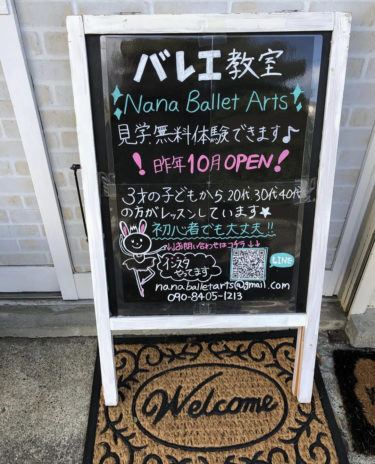 バレエ教室
Nana Ballet Arts
見学、無料体験できます♪
！昨年10月OPEN！
3才の子どもから、20代、30代、40代
の方がレッスンしています★
初心者でも大丈夫!!
↓↓お問い合わせはコチラ↓↓
インスタ
やってます
LINE
nanaballetarts@gmail.com
090-8405-1213
Welcome